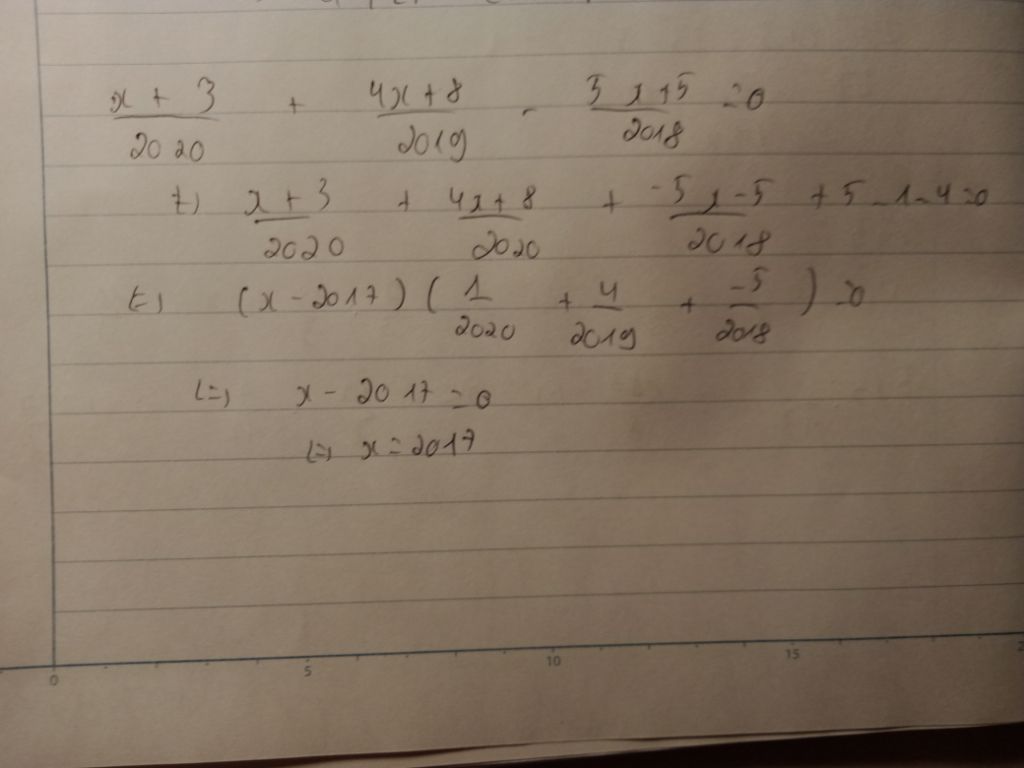 x + 3 / 2020 + 4x + 8 / 2019 - 5x + 5 / 2018 = 0
<=> x + 3 / 2020 + 4x + 8 / 2020 + -5x - 5 / 2018 + 5 - 1 - 4 = 0
<=> (x - 2017) ( 1 / 2020 + 4 / 2019 + -5 / 2018 ) = 0
<=> x - 2017 = 0
<=> x = 2017
0 5 10 15